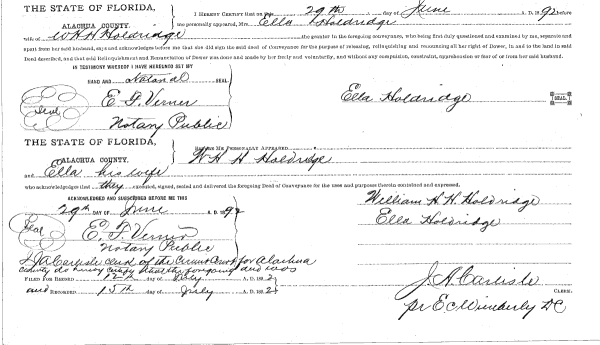 THE STATE OF FLORIDA,
ALACHUA COUNTY.
I HEREBY CERTIFY That on this 29th day of June A. D. 1892 before
me personally appeared, Mrs. Ella Holdridge
wife of W H H Holdridge the grantor in the foregoing conveyance, who being first duly questioned and examined by me, separate and
apart from her said husband, says and acknowledges before me that she did sign the said deed of Conveyance for the purpose of releasing, relinquishing and renouncing all her right of Dower, in and to the land in said
Deed described, and that said Relinquishment and Renunciation of Dower was done and made by her freely and voluntarily, and without any compulsion, constraint, apprehension or fear of or from her said husband.
IN TESTIMONY WHEREOF I HAVE HEREUNTO SET MY
HAND AND Notarial SEAL
Seal E. F. Verner
Notary Public
Ella Holdridge SEAL
THE STATE OF FLORIDA,
ALACHUA COUNTY.
BEFORE ME PERSONALLY APPEARED W H H Holdridge
and Ella his wife
who acknowledges that they executed, signed, sealed and delivered the foregoing Deed of Conveyance for the uses and purposes therein contained and expressed.
ACKNOWLEDGED AND SUBSCRIBED BEFORE ME THIS
29th DAY OF June A. D. 1892
Seal E. F. Verner
Notary Public
William H. H. Holdridge
Ella Holdridge
I J A Carlisle clerk of the Circuit Court for Alachua
county do hereby certify that the foregoing deed was
FILED FOR RECORD 12th day of July A. D. 1892
and RECORDED 15th day of July A. D. 1892
J. A. Carlisle CLERK.
pr E C Wimberly DC